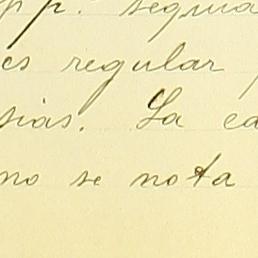 pp. segui
es regular
sias. La ca
no se nota